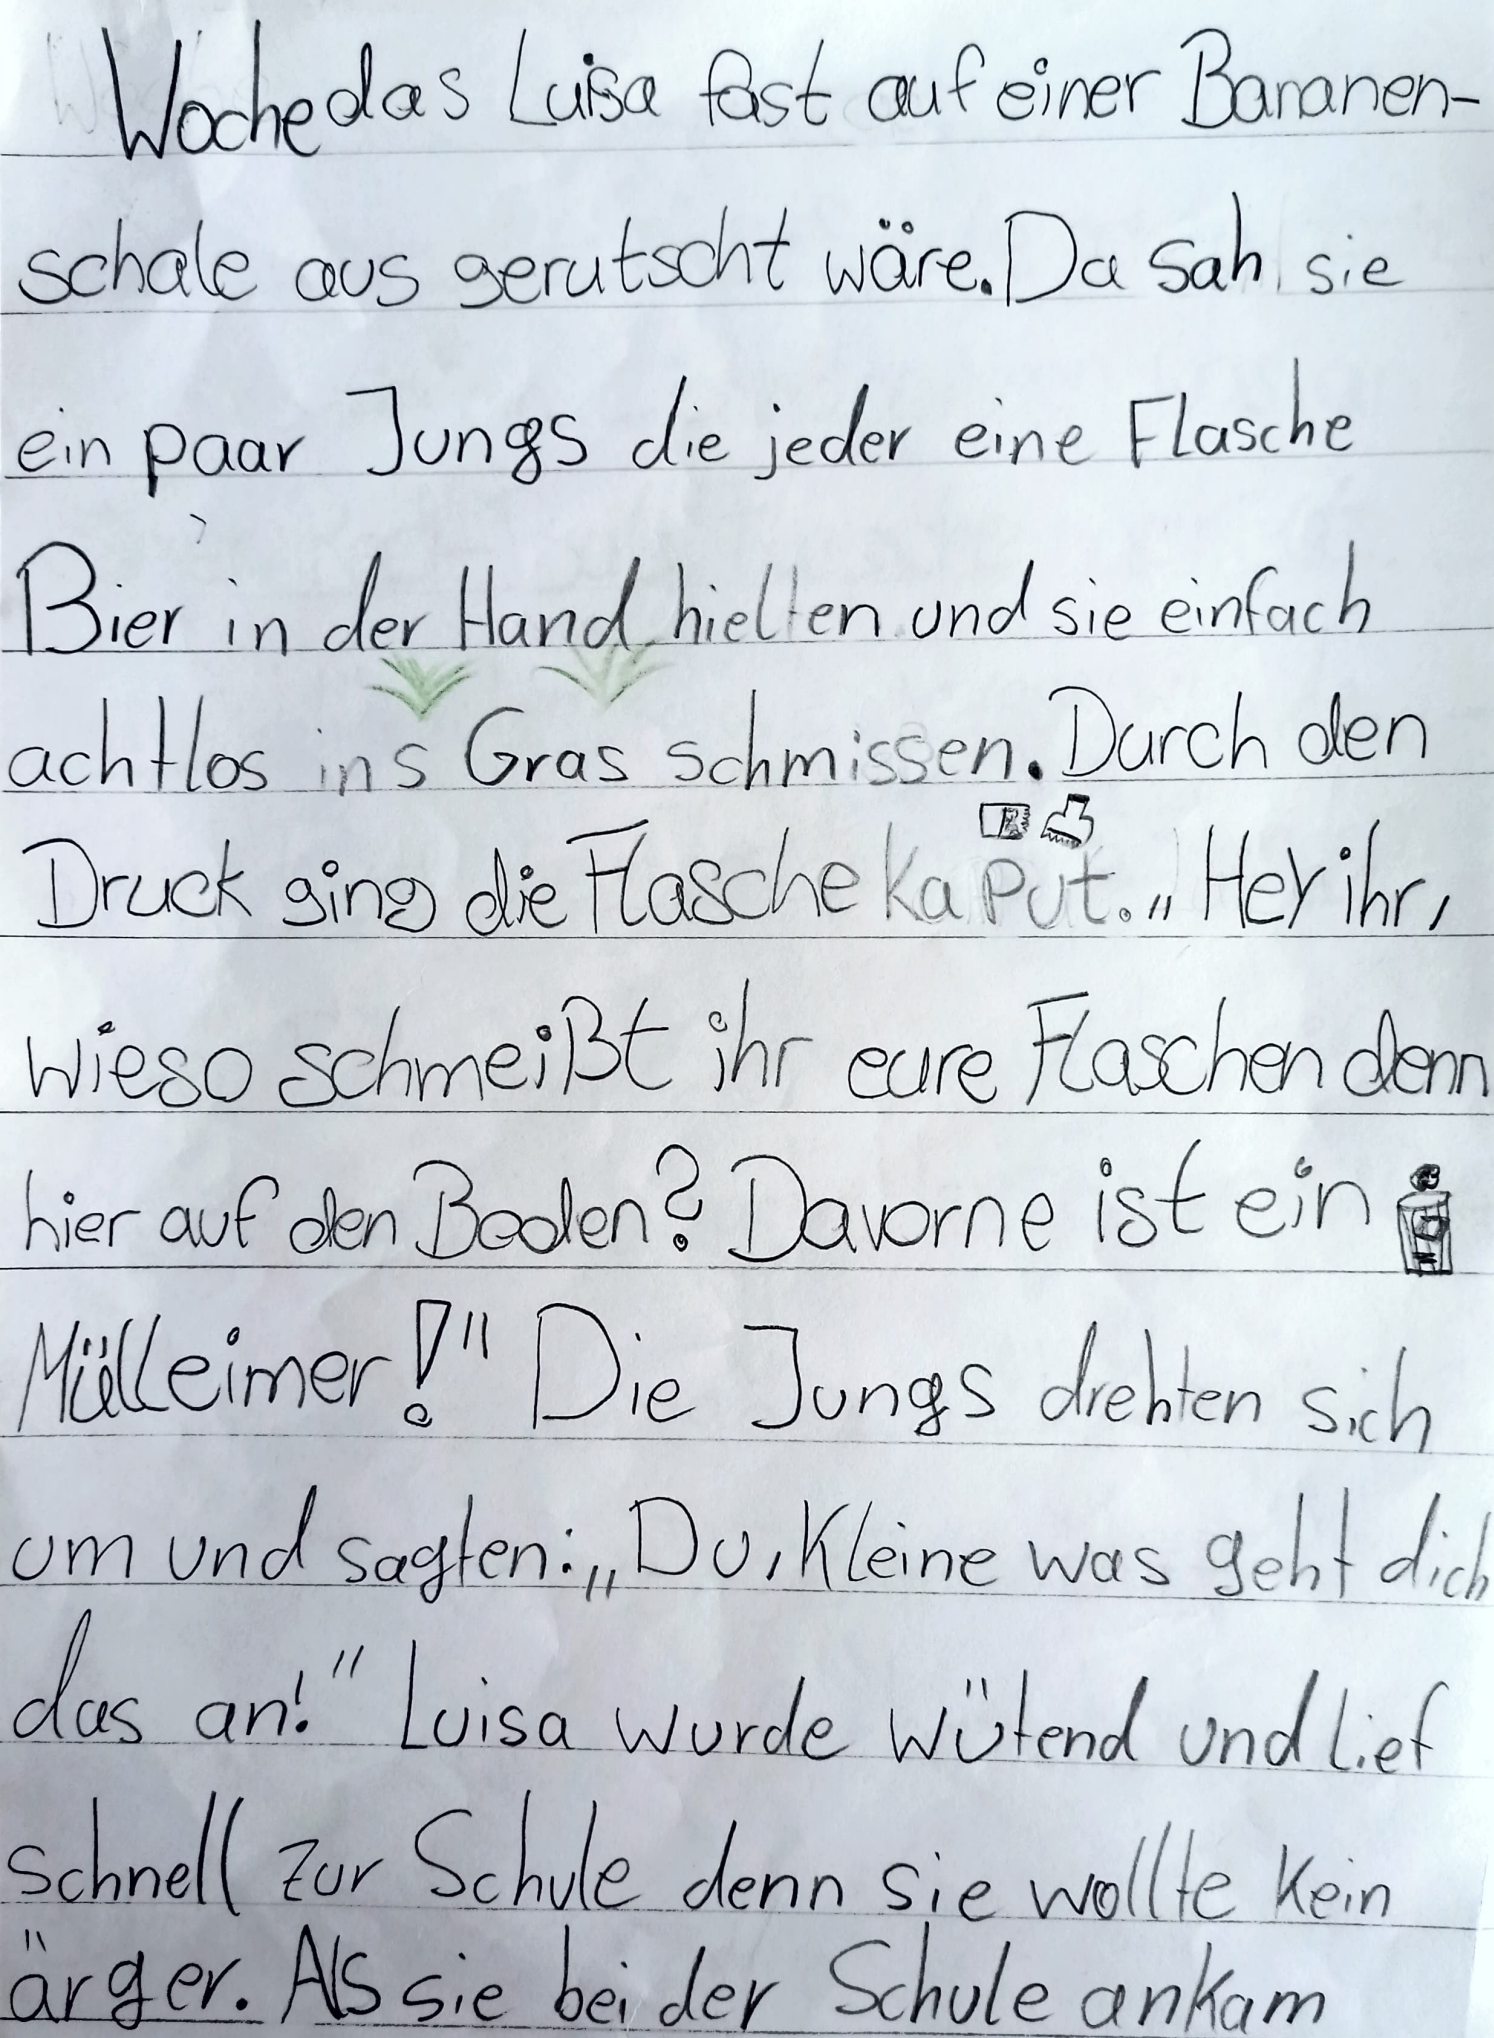 Woche das Luisa fast auf einer Bananen-
schale aus gerutscht wäre. Da sah sie
ein paar Jungs die jeder eine Flasche
Bier in der Hand hielten und sie einfach
achtlos ins Gras schmissen. Durch den
Druck ging die Flasche kaput. „Hey ihr,
wieso schmeißt ihr eure Flaschen denn
hier auf den Boden? Davorne ist ein
Mülleimer!" Die Jungs drehten sich
um und sagten: „Du, Kleine was geht dich
das an!" Luisa wurde wütend und lief
schnell zur Schule denn sie wollte kein
ärger. Als sie bei der Schule ankam